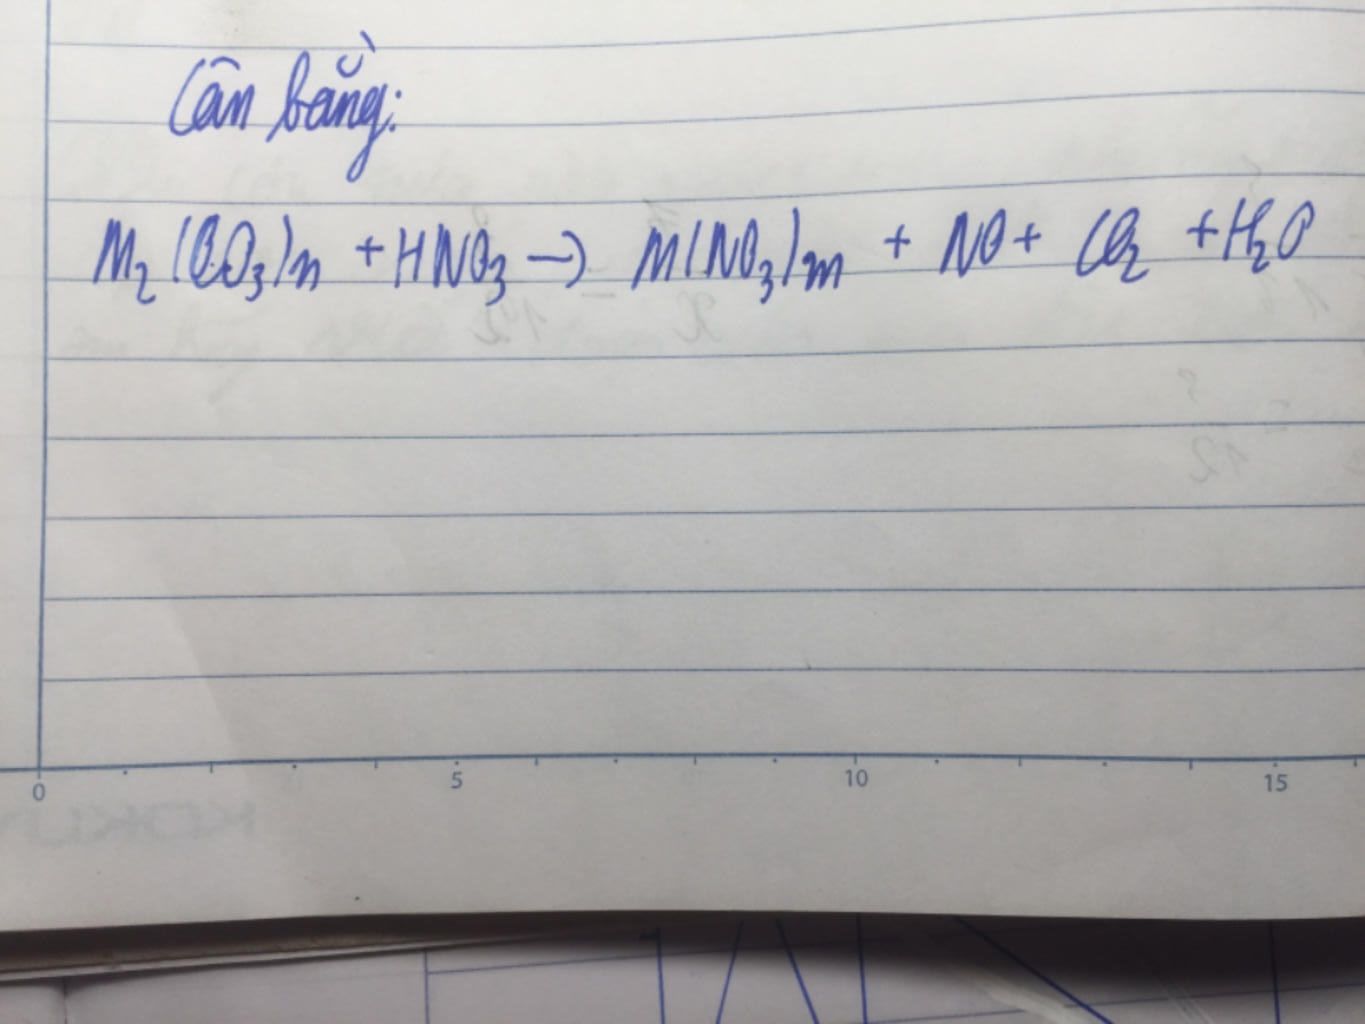 Cân bằng:
M₂(CO₃)n + HNO₃ → M(NO₃)m + NO + CO₂ + H₂O
0 5 10 15